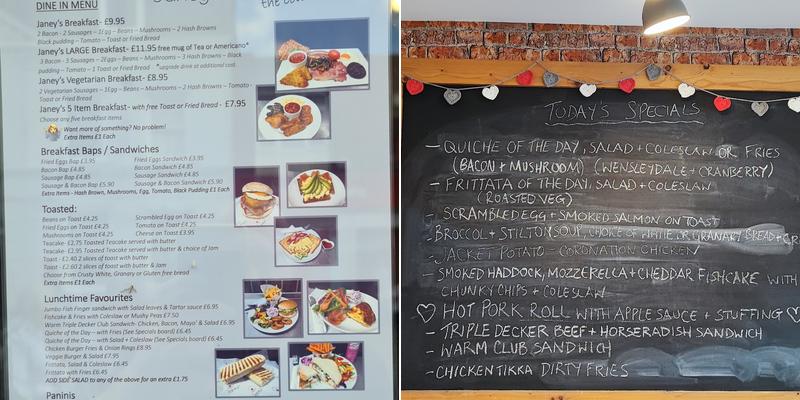 DINE IN MENU
Janey's Breakfast- £9.95
2 Bacon - 2 Sausages – 1Egg – Beans – Mushrooms – 2 Hash Browns
Black pudding – Tomato – Toast or Fried Bread
Janey's LARGE Breakfast- £11.95 free mug of Tea or Americano*
3 Bacon - 3 Sausages – 2Eggs – Beans – Mushrooms – 3 Hash Browns – Black
pudding – Tomato – 1 Toast or Fried Bread *upgrade drink at additional cost
Janey's Vegetarian Breakfast - £8.95
2 Vegetarian Sausages – 1Egg – Beans – Mushrooms – 2 Hash Browns – Tomato -
Toast or Fried Bread
Janey's 5 Item Breakfast - with free Toast or Fried Bread - £7.95
Choose any five breakfast items
Want more of something? No problem!
Extra Items £1 Each
Breakfast Baps / Sandwiches
Fried Eggs Bap £3.95 Fried Eggs Sandwich £3.95
Bacon Bap £4.85 Bacon Sandwich £4.85
Sausage Bap £4.85 Sausage Sandwich £4.85
Sausage & Bacon Bap £5.90 Sausage & Bacon Sandwich £5.90
Extra Items - Hash Brown, Mushrooms, Egg, Tomato, Black Pudding £1 Each
Toasted:
Beans on Toast £4.25 Scrambled Egg on Toast £4.25
Fried Eggs on Toast £4.25 Tomato on Toast £4.25
Mushrooms on Toast £4.25 Cheese on Toast £3.95
Teacake- £2.75 Toasted Teacake served with butter
Teacake- £2.95 Toasted Teacake served with butter & choice of Jam
Toast - £2.40 2 slices of toast with butter
Toast - £2.60 2 slices of toast with butter & Jam
Choose from Crusty White, Granary or Gluten free bread
Extra Items £1 Each
Lunchtime Favourites
Jumbo Fish Finger sandwich with Salad leaves & Tartar sauce £6.95
Fishcake & Fries with Coleslaw or Mushy Peas £7.50
Warm Triple Decker Club Sandwich- Chicken, Bacon, Mayo' & Salad £6.95
Quiche of the Day – with Fries (See Specials board) £6.45
Quiche of the Day – with Salad + Coleslaw (See Specials board) £6.45
Chicken Burger Fries & Onion Rings £8.95
Veggie Burger & Salad £7.95
Frittata, Salad & Coleslaw £6.45
Frittata with Fries £6.45
ADD SIDE SALAD to any of the above for an extra £1.75
Paninis
TODAY'S SPECIALS
- QUICHE OF THE DAY, SALAD + COLESLAW OR FRIES
(BACON + MUSHROOM) (WENSLEYDALE + CRANBERRY)
- FRITTATA OF THE DAY, SALAD + COLESLAW
(ROASTED VEG)
- SCRAMBLED EGG + SMOKED SALMON ON TOAST
- BROCCOLI + STILTON SOUP, CHOICE OF WHITE OR GRANARY BREAD +
- JACKET POTATO - CORONATION CHICKEN
- SMOKED HADDOCK, MOZZERELLA + CHEDDAR FISHCAKE WITH
CHUNKY CHIPS + COLESLAW
♡ HOT PORK ROLL WITH APPLE SAUCE + STUFFING ♡
- TRIPLE DECKER BEEF + HORSERADISH SANDWICH
- WARM CLUB SANDWICH
- CHICKEN TIKKA DIRTY FRIES